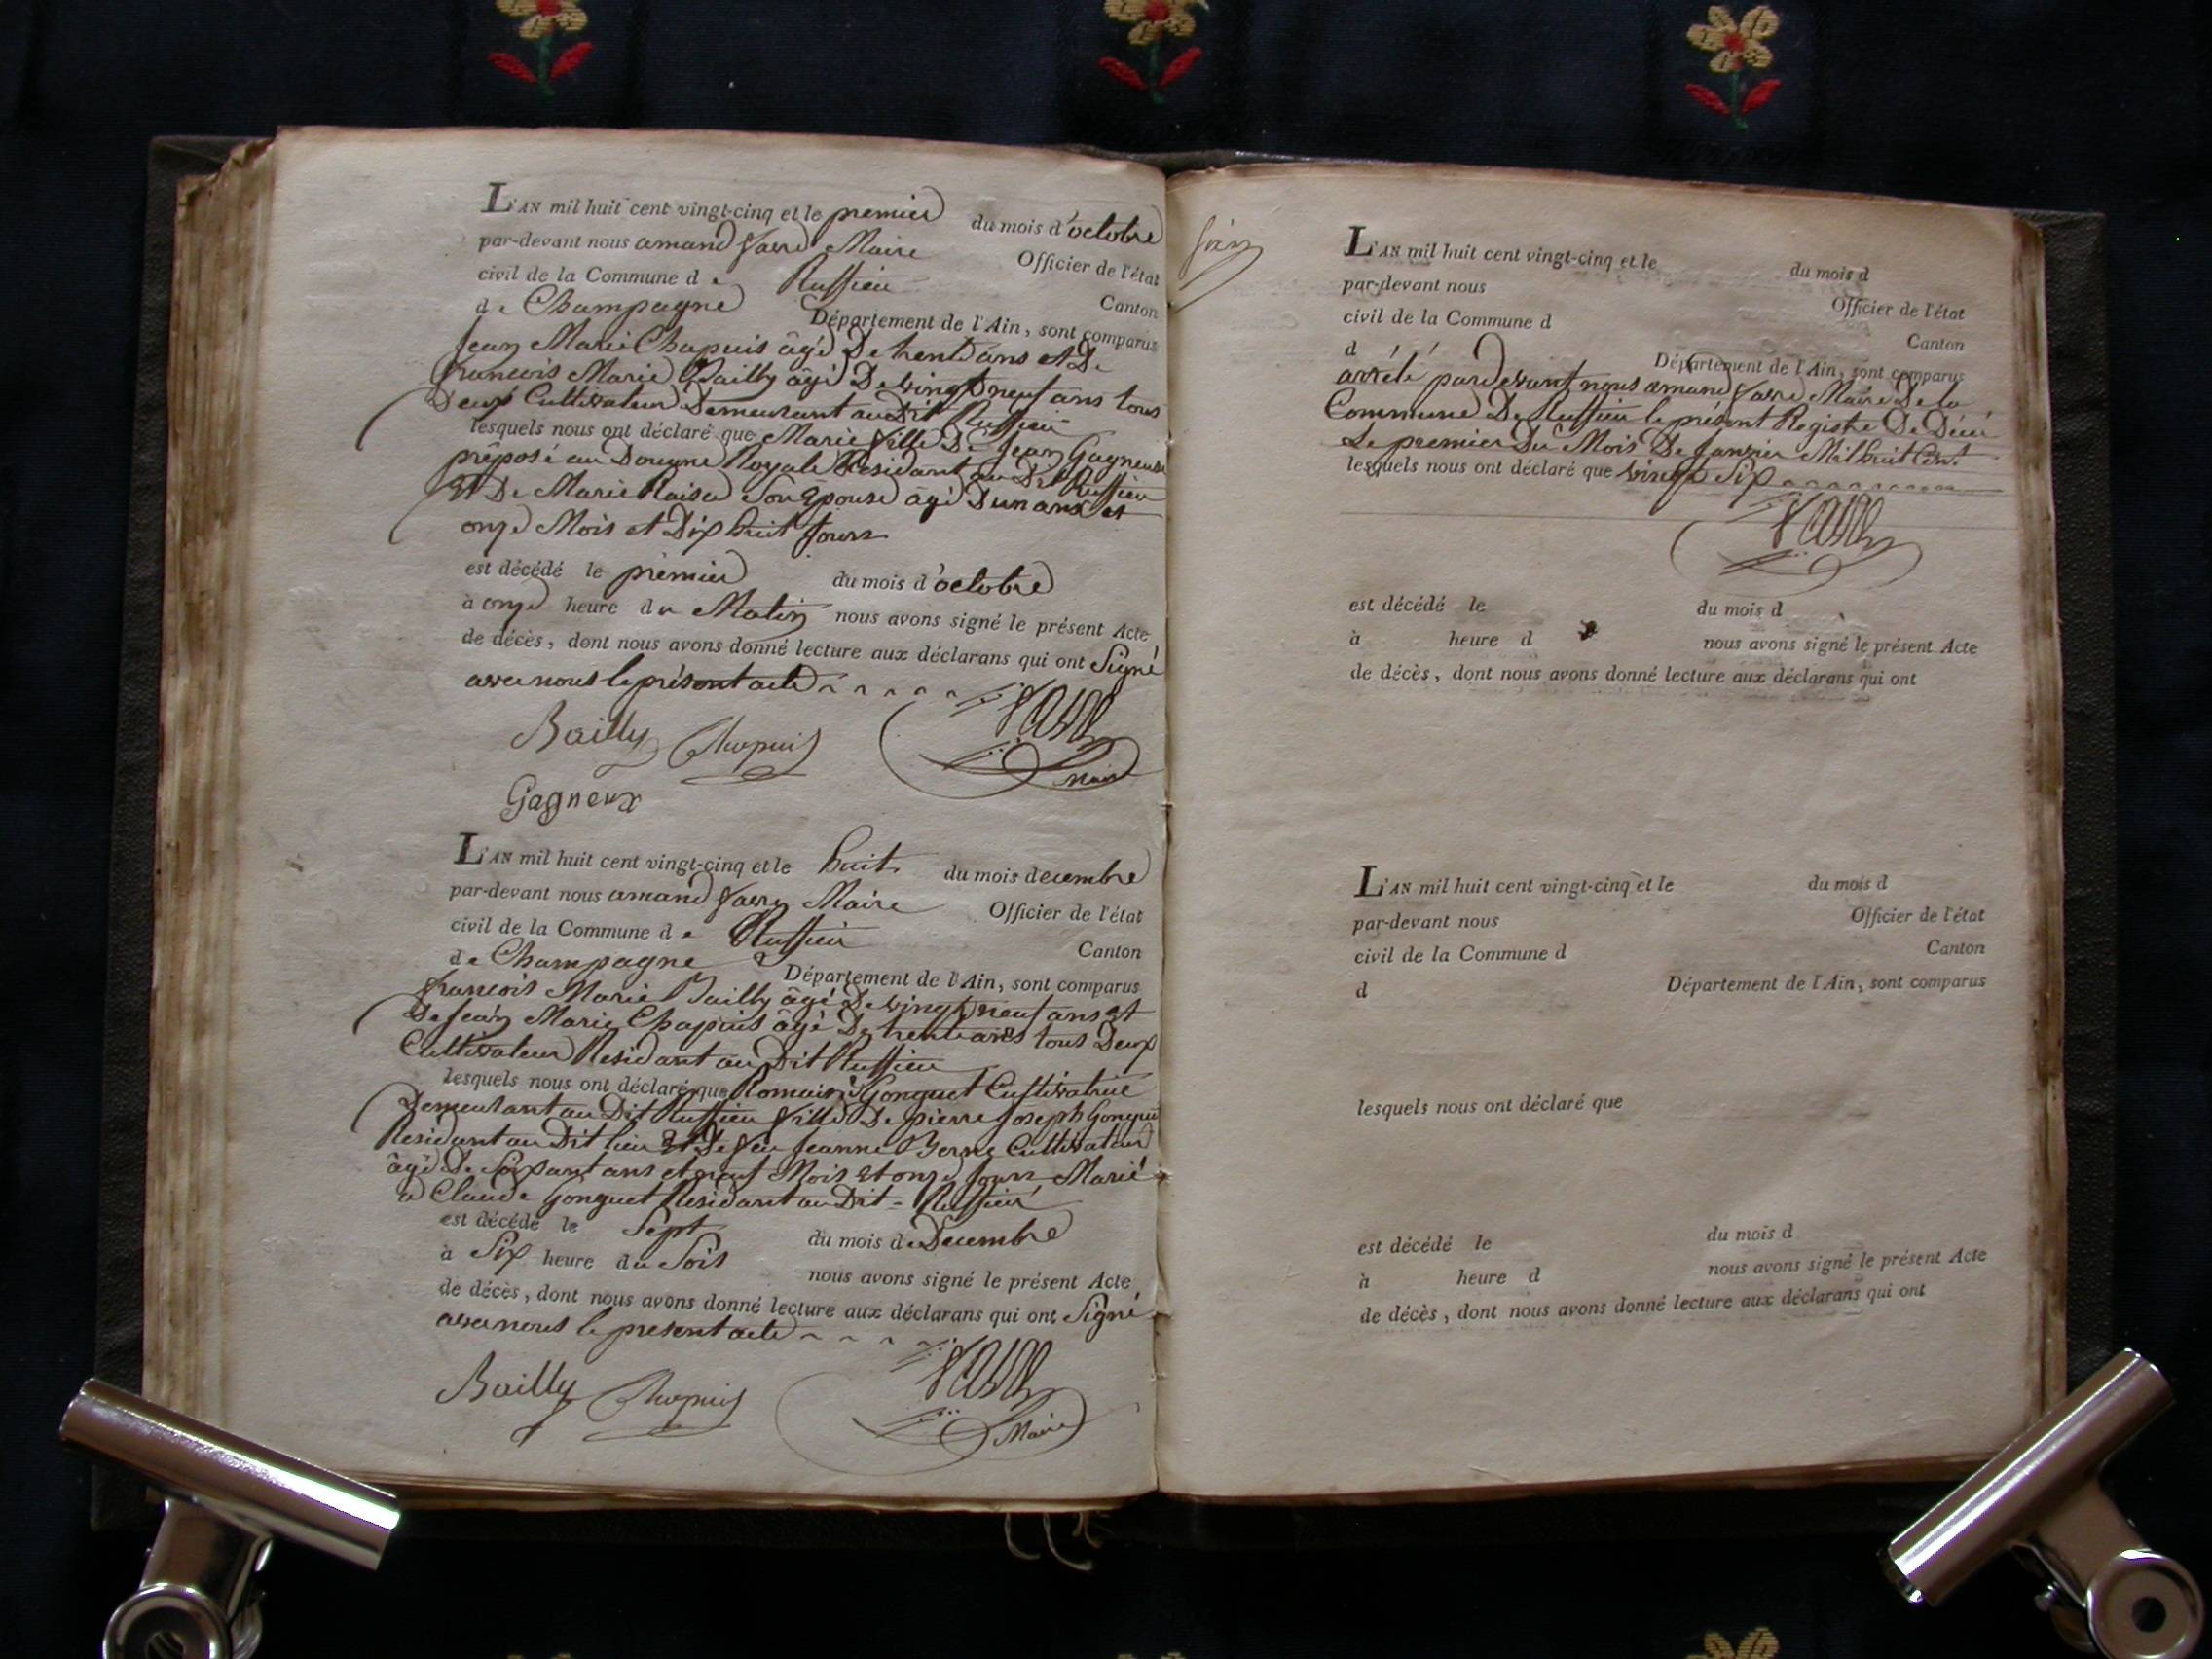 L'AN mil huit cent vingt-cinq et le premier du mois d'octobre
par-devant nous amand favre Maire Officier de l'état
civil de la Commune de Ruffieu Canton
de Champagne Département de l'Ain, sont comparus
Jean Marie Chapuis âgé De trente ans et De
francois Marie Bailly âgé De vingt neuf ans tous
Deux Cultivateur Demeurant au Dit Ruffieu
lesquels nous ont déclaré que Marie fille De Jean Gagneux
préposé au Douane Royale Residant au Dit Ruffieu
Et De Marie Raisa Son Epouse agé D'un ans et
onze Mois et Dix huit Jours
est décédé le premier du mois d'octobre
à onze heure du Matin nous avons signé le présent Acte
de décès, dont nous avons donné lecture aux déclarans qui ont Signé
avec nous le présent acte
Bailly Chapuis favre
Maire
Gagneux
L'AN mil huit cent vingt-cinq et le huit du mois decembre
par-devant nous amand favre Maire Officier de l'état
civil de la Commune de Ruffieu Canton
de Champagne Département de l'Ain, sont comparus
francois Marie Bailly âgé De vingt neuf ans et
De Jean Marie Chapuis âgé De trente ans tous Deux
Cultivateur Residant au Dit Ruffieu
lesquels nous ont déclaré que Romain Gonguet Cultivatrice
Demeurant au Dit Ruffieu fille De pierre Joseph Gonguet
Residant au Dit lieu Et De feu Jeanne Berne Cultivateur
âgé De Soixant ans et neuf Mois et onze Jours Marié
a Claude Gonguet Residant au Dit Ruffieu
est décédé le Sept du mois de Decembre
à Six heure du Soir nous avons signé le présent Acte
de décès, dont nous avons donné lecture aux déclarans qui ont Signé
avec nous le present acte
Bailly Chapuis favre
Maire
L'AN mil huit cent vingt-cinq et le du mois d
par-devant nous Officier de l'état
civil de la Commune d Canton
d Département de l'Ain, sont comparus
arrêté par devant nous amand favre Maire De la
Commune De Ruffieu le présent Registe De Décé
Le premier Du Mois De Janvier Mil huit Cent
lesquels nous ont déclaré que vingt Six
favre
est décédé le du mois d
à heure d nous avons signé le présent Acte
de décès, dont nous avons donné lecture aux déclarans qui ont
L'AN mil huit cent vingt-cinq et le du mois d
par-devant nous Officier de l'état
civil de la Commune d Canton
d Département de l'Ain, sont comparus
lesquels nous ont déclaré que
est décédé le du mois d
à heure d nous avons signé le présent Acte
de décès, dont nous avons donné lecture aux déclarans qui ont